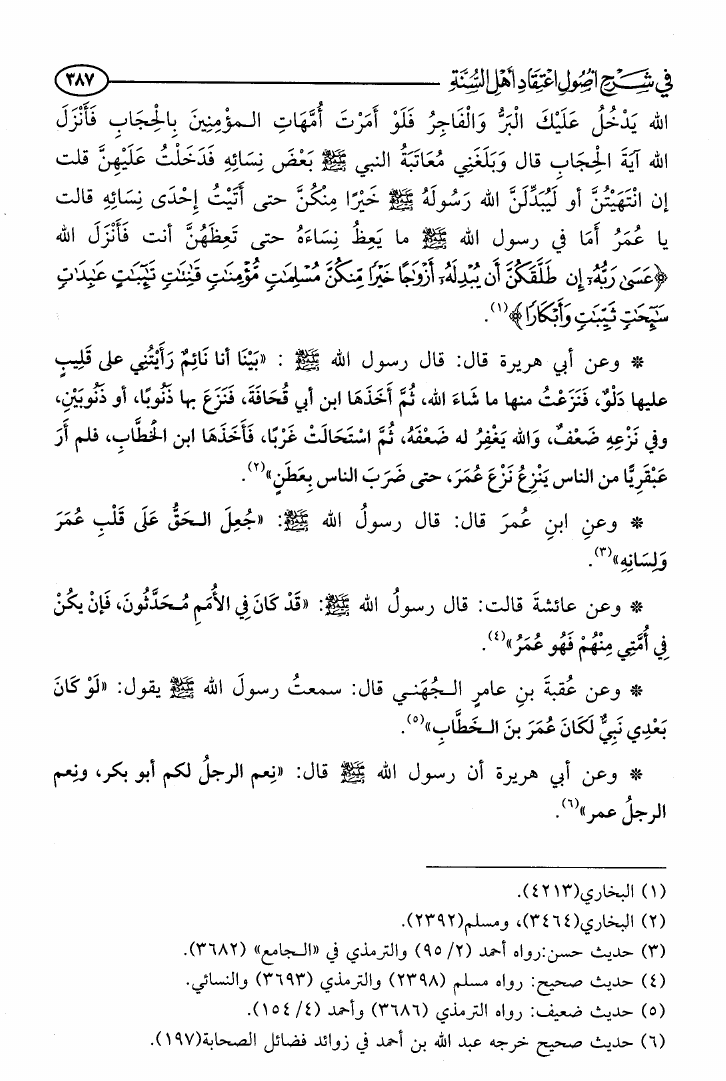 في شرح أصول اعتقاد أهل السنة ٣٨٧
الله يَدْخُلُ عَلَيْكَ الْبَرُّ وَالْفَاجِرُ فَلَوْ أَمَرْتَ أُمَّهَاتِ الـمؤْمِنِينَ بِالْحِجَابِ فَأَنْزَلَ
الله آيَةَ الْحِجَابِ قال وَبَلَغَنِي مُعَاتَبَةُ النبي ﷺ بَعْضَ نِسَائِهِ فَدَخَلْتُ عَلَيْهِنَّ قلت
إن انْتَهَيْتُنَّ أو لَيُبَدِّلَنَّ الله رَسُولَهُ ﷺ خَيْرًا مِنْكُنَّ حتى أَتَيْتُ إِحْدَى نِسَائِهِ قالت
يا عُمَرُ أَمَا في رسول الله ﷺ ما يَعِظُ نِسَاءَهُ حتى تَعِظَهُنَّ أنت فَأَنْزَلَ الله
﴿عَسَىٰ رَبُّهُۥٓ إِن طَلَّقَكُنَّ أَن يُبْدِلَهُۥٓ أَزْوَٰجًا خَيْرًا مِّنكُنَّ مُسْلِمَٰتٍ مُّؤْمِنَٰتٍ قَٰنِتَٰتٍ تَٰٓئِبَٰتٍ عَٰبِدَٰتٍ
سَٰٓئِحَٰتٍ ثَيِّبَٰتٍ وَأَبْكَارًا﴾(١).
* وعن أبي هريرة قال: قال رسول الله ﷺ : «بَيْنَا أنا نَائِمٌ رَأَيْتُنِي على قَلِيبٍ
عليها دَلْوٌ، فَنَزَعْتُ منها ما شَاءَ الله، ثُمَّ أَخَذَهَا ابن أبي قُحَافَةَ، فَنَزَعَ بها ذَنُوبًا، أو ذَنُوبَيْنِ،
وفي نَزْعِهِ ضَعْفٌ، وَالله يَغْفِرُ له ضَعْفَهُ، ثُمَّ اسْتَحَالَتْ غَرْبًا، فَأَخَذَهَا ابن الْخَطَّابِ، فلم أَرَ
عَبْقَرِيًّا من الناس يَنْزِعُ نَزْعَ عُمَرَ، حتى ضَرَبَ الناس بِعَطَنٍ»(٢).
* وعنِ ابنِ عُمرَ قال: قال رسولُ الله ﷺ: «جُعِلَ الـحَقُّ عَلَى قَلْبِ عُمَرَ
وَلِسَانِهِ»(٣).
* وعن عائشةَ قالت: قال رسولُ الله ﷺ: «قَدْ كَانَ فِي الأُمَمِ مُـحَدَّثُونَ، فَإِنْ يكُنْ
فِي أُمَّتِي مِنْهُمْ فَهُو عُمَرُ»(٤).
* وعن عُقبةَ بنِ عامرٍ الـجُهَنـي قال: سمعتُ رسولَ الله ﷺ يقول: «لَوْ كَانَ
بَعْدِي نَبِيٌّ لَكَانَ عُمَرَ بنَ الـخَطَّابِ»(٥).
* وعن أبي هريرة أن رسول الله ﷺ قال: «نِعم الرجلُ لكم أبو بكر، ونِعم
الرجلُ عمر»(٦).
(١) البخاري(٤٢١٣).
(٢) البخاري(٣٤٦٤)، ومسلم(٢٣٩٢).
(٣) حديث حسن:رواه أحمد (٢/ ٩٥) والترمذي في «الـجامع» (٣٦٨٢).
(٤) حديث صحيح: رواه مسلم (٢٣٩٨) والترمذي (٣٦٩٣) والنسائي.
(٥) حديث ضعيف: رواه الترمذي (٣٦٨٦) وأحمد (٤/ ١٥٤).
(٦) حديث صحيح خرجه عبد الله بن أحمد في زوائد فضائل الصحابة(١٩٧).